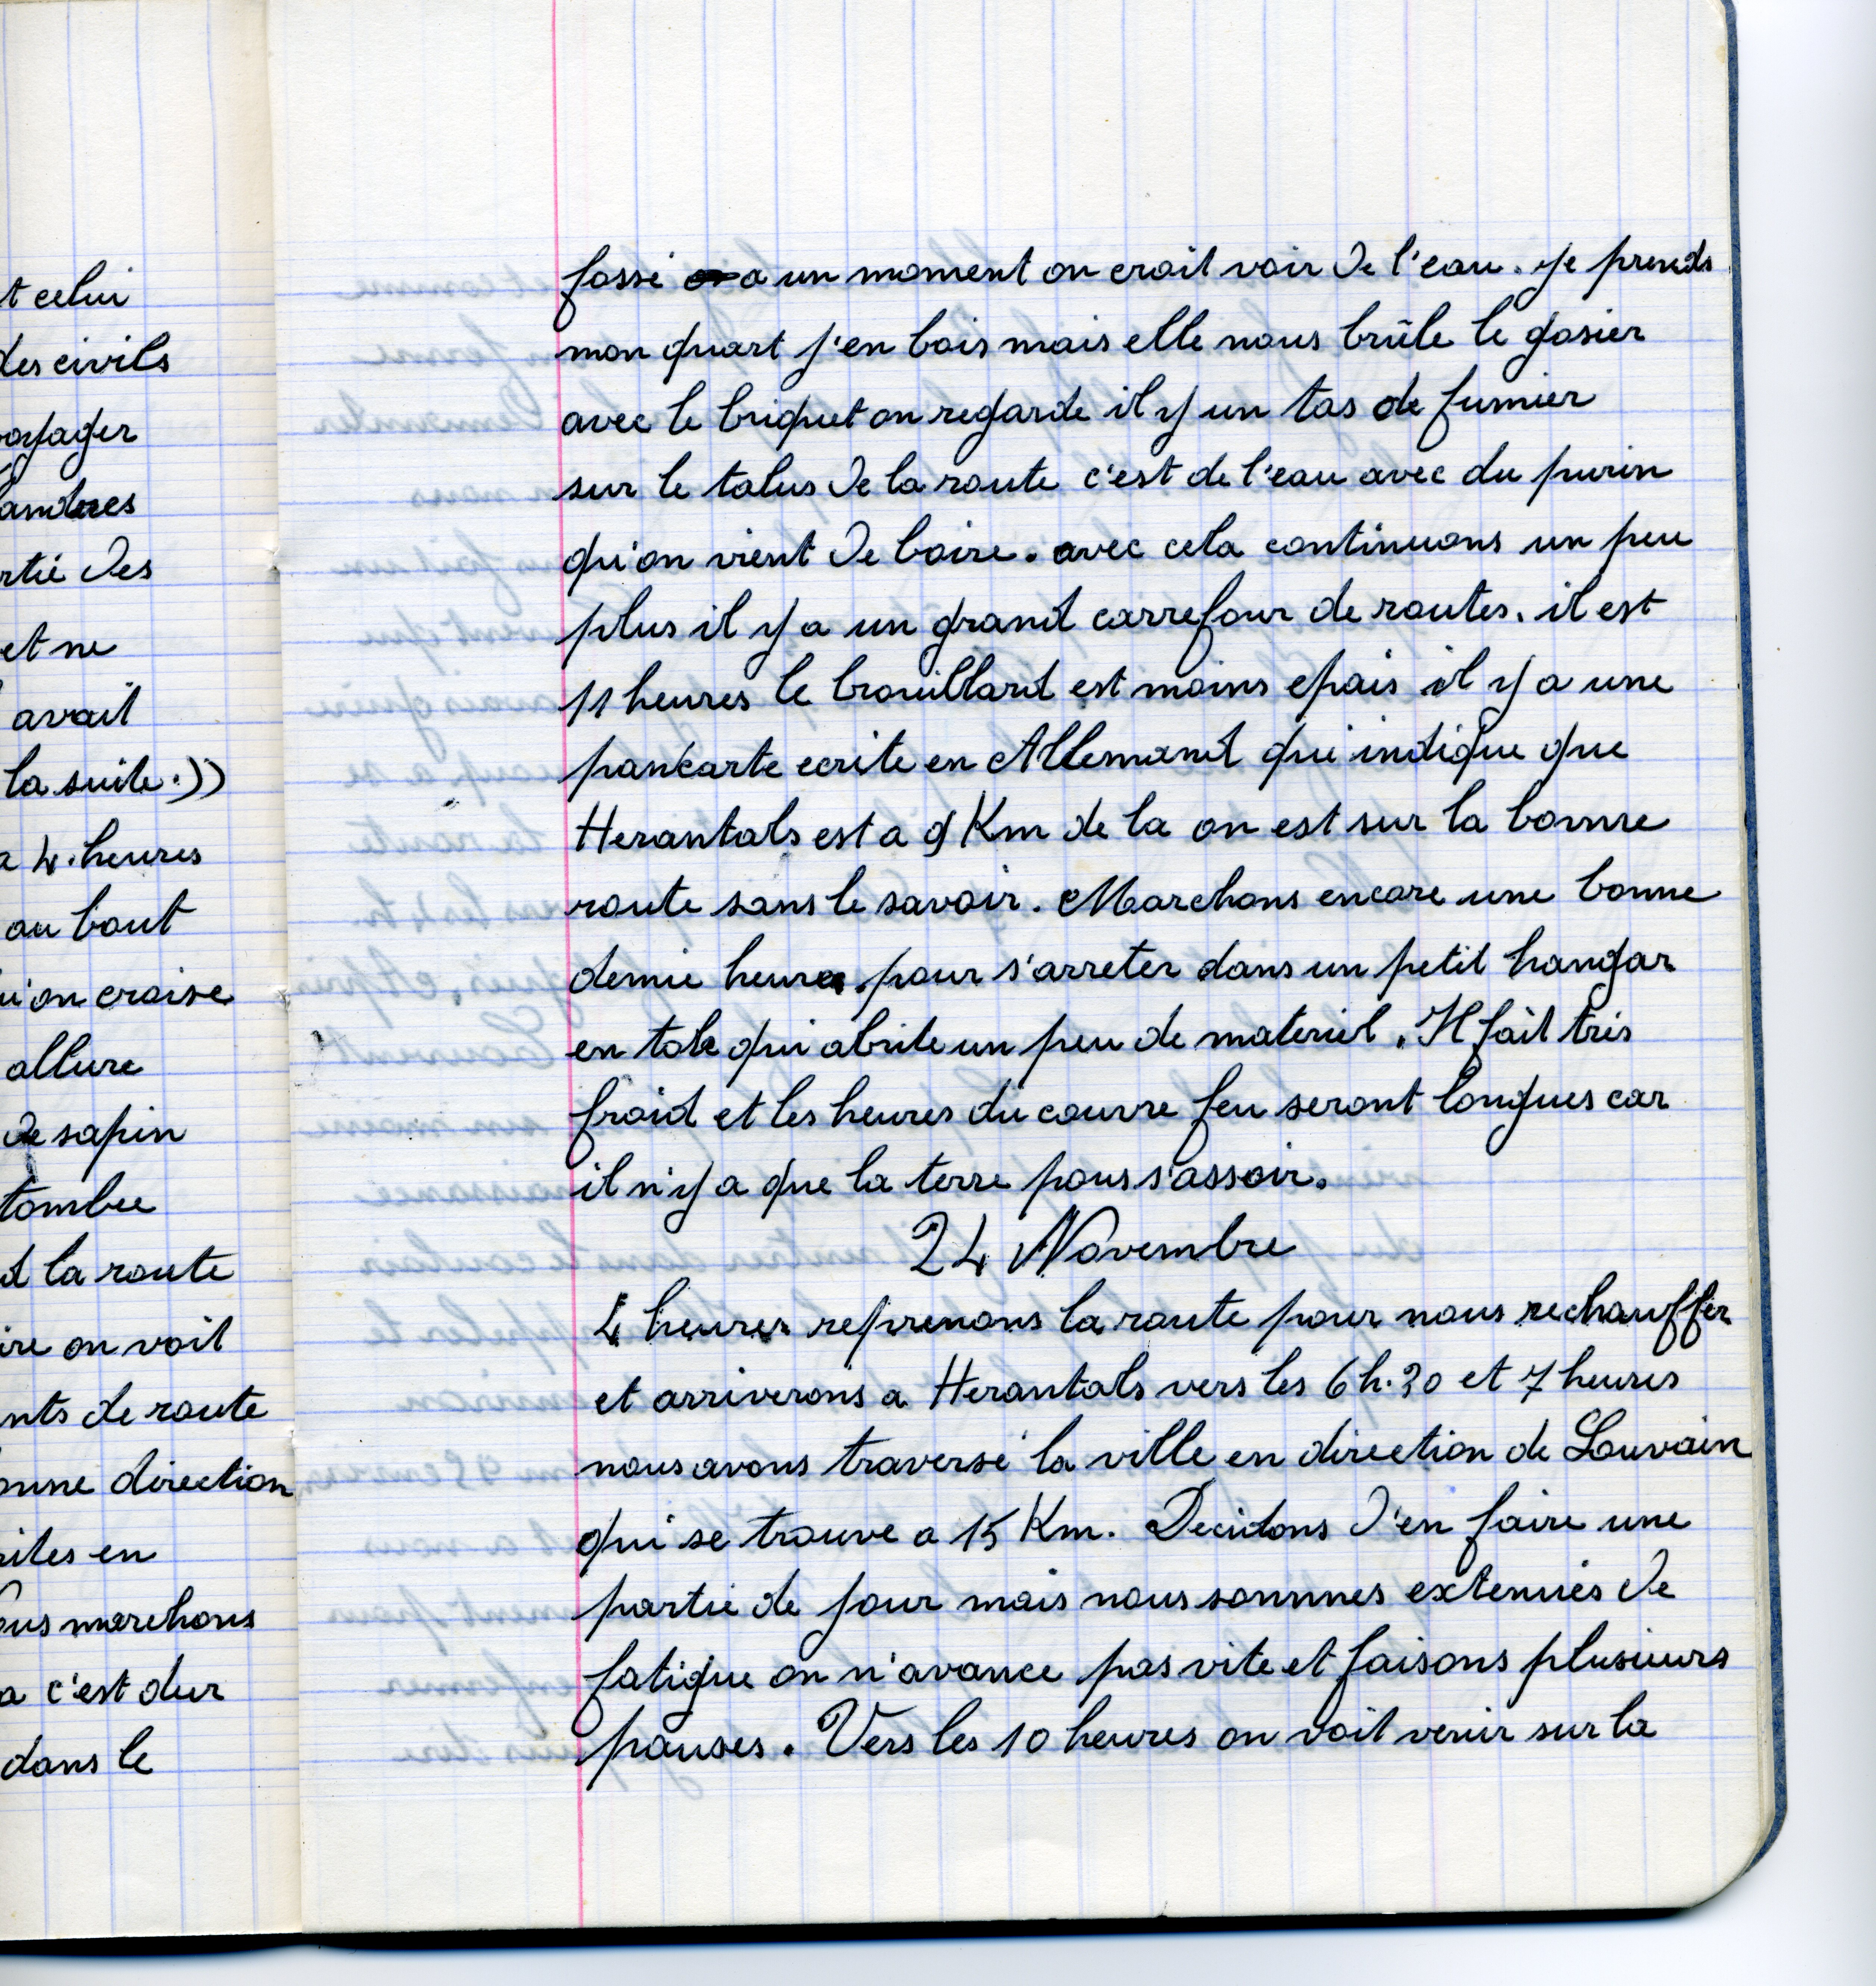 t celui
des civils
oyager
landres
rtie des
et ne
avait
la suite.))
a 4 heures
au bout
u'on croise
allure
de sapin
tombee
d la route
ire on voit
nts de route
onne direction
rites en
ous marchons
a c'est dur
dans le
fossé a un moment on croit voir de l'eau. je prends
mon quart j'en bois mais elle nous brûle le gosier
avec le briquet on regarde il y un tas de fumier
sur le talus de la route c'est de l'eau avec du purin
qu'on vient de boire. avec cela continuons un peu
plus il y a un grand carrefour de routes. il est
11 heures le brouillard est moins epais il y a une
pancarte ecrite en Allemand qui indique que
Herantals est a 9 Km de la on est sur la bonne
route sans le savoir. Marchons encore une bonne
demie heure pour s'arreter dans un petit hangar
en tole qui abrite un peu de materiel. Il fait très
froid et les heures du couvre feu seront longues car
il n'y a que la terre pour s'assoir.
24 Novembre
4 heures reprenons la route pour nous rechauffer
et arriverons a Herantals vers les 6 h. 30 et 7 heures
nous avons traversé la ville en direction de Louvain
qui se trouve a 15 Km. Decidons d'en faire une
partie de jour mais nous sommes extenués de
fatigue on n'avance pas vite et faisons plusieurs
pauses. Vers les 10 heures on voit venir sur la